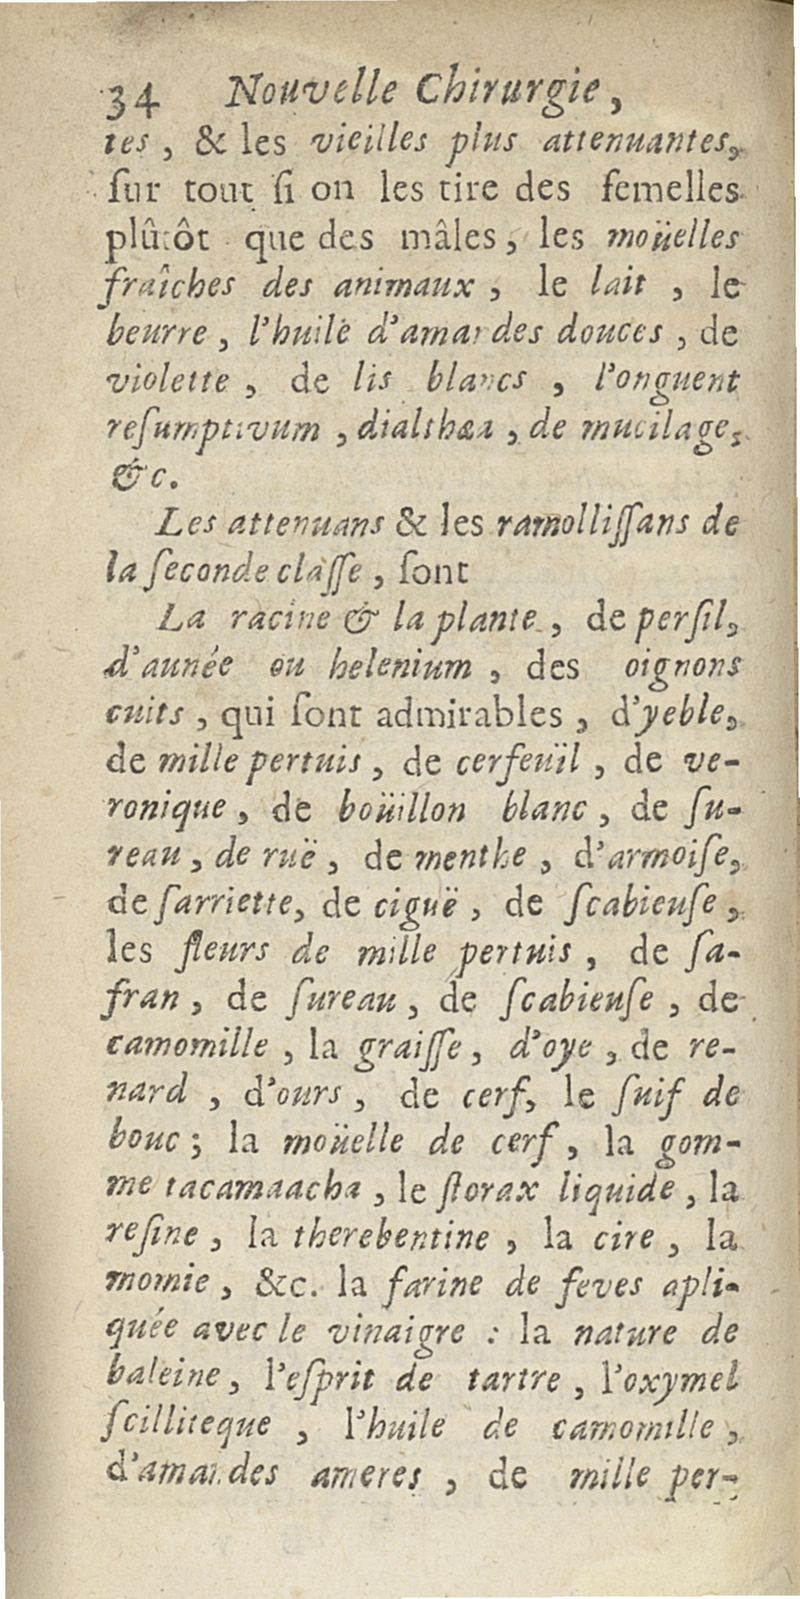 34 Nouvelle Chirurgie,
tes, & les vieilles plus attenuantes,
ſur tout ſi on les tire des femelles
plûtôt que des mâles, les moüelles
fraîches des animaux, le lait, le
beurre, l'huile d'amandes douces, de
violette, de lis blancs, l'onguent
reſumptivum, dialthæa, de mucilage,
&c.
Les attenuans & les ramolliſſans de
la ſeconde claſſe, ſont
La racine & la plante, de perſil,
d'aunée ou helenium, des oignons
cuits, qui ſont admirables, d'yeble,
de mille pertuis, de cerfeüil, de ve-
ronique, de boüillon blanc, de ſu-
reau, de ruë, de menthe, d'armoiſe,
de ſarriette, de ciguë, de ſcabieuſe,
les fleurs de mille pertuis, de ſa-
fran, de ſureau, de ſcabieuſe, de
camomille, la graiſſe, d'oye, de re-
nard, d'ours, de cerf, le ſuif de
bouc; la moüelle de cerf, la gom-
me tacamaacha, le ſtorax liquide, la
reſine, la therebentine, la cire, la
momie, &c. la farine de feves apli-
quée avec le vinaigre : la nature de
baleine, l'eſprit de tartre, l'oxymel
ſcilliteque, l'huile de camomille,
d'amandes ameres, de mille per-